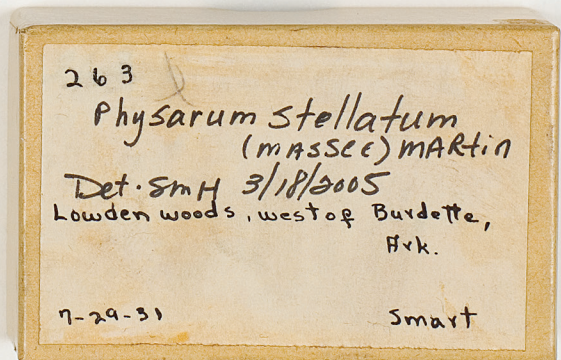 263
Physarum stellatum
(MASSEE) MARtin
Det. SmH 3/18/2005
Lowden woods, west of Burdette,
Ark.
7-29-31
Smart